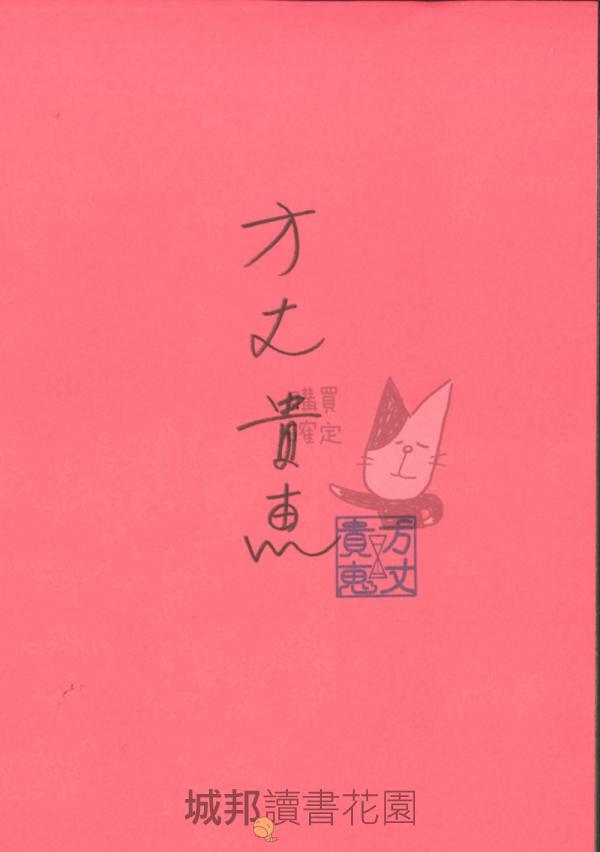 方丈貴恵
購買
確定
方丈
貴恵
城邦讀書花園